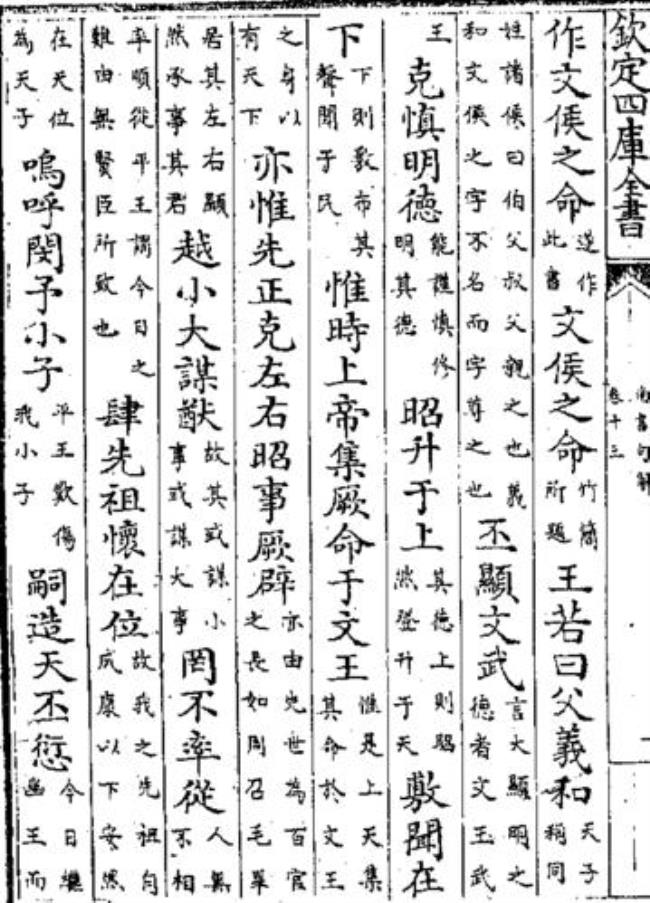 欽定四庫全書 尚書句解 卷十三
作文侯之命遂作此書文侯之命竹簡所題王若曰父義和天子稱同
姓諸侯曰伯父叔父親之也義和文侯之字不名而字尊之也丕顯文武言大顯明之德者文王武
王克慎明德能謹慎修明其德昭升于上其德上則昭然登升于天敷聞在
下下則敷布其聲聞于民惟時上帝集厥命于文王惟是上天集其命於文王
之身以有天下亦惟先正克左右昭事厥辟亦由先世為百官之長如周召毛畢
居其左右顯然承事其君越小大謀猷故其或謀小事或謀大事罔不率從人無不相
率順從平王謂今日之難由無賢臣所致也肆先祖懷在位故我之先祖自成康以下安然
在天位為天子嗚呼閔予小子平王歎傷我小子嗣造天丕愆今日繼幽王而